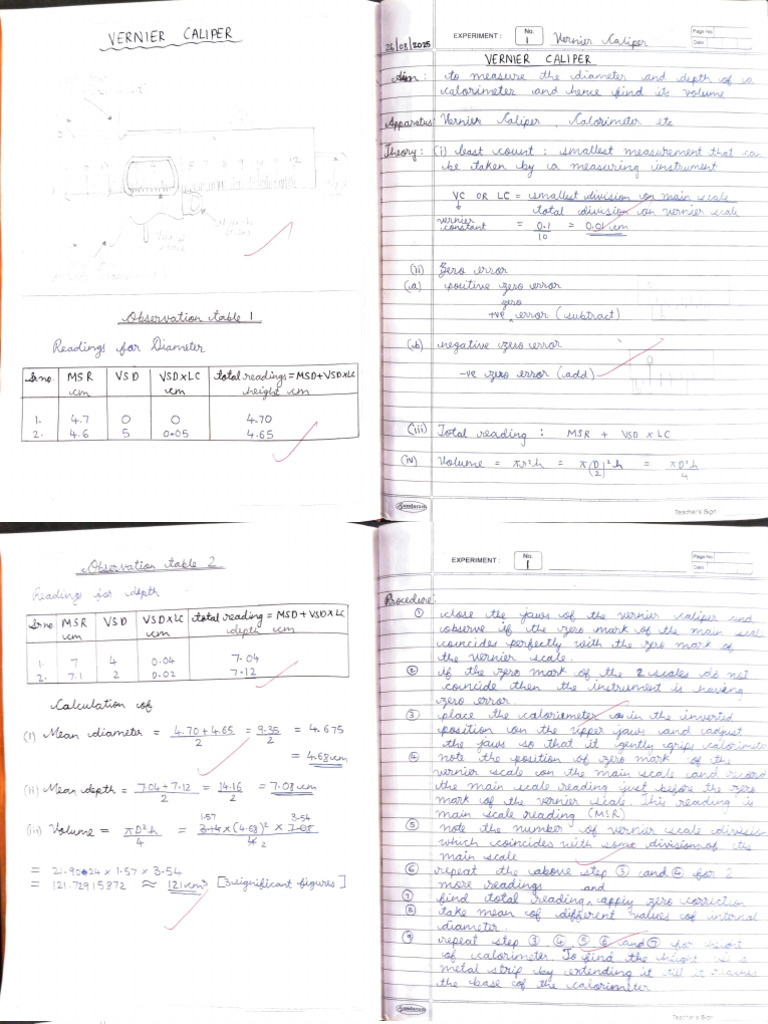 VERNIER CALIPER
Observation table 1
Readings for Diameter
Sr no. MSR cm VSD VSD×LC cm total readings = MSD+VSD×LC height cm
1. 4.7 0 0 4.70
2. 4.6 5 0.05 4.65
26/03/2025
EXPERIMENT : No. 1 Vernier Caliper
Page No.
Date
VERNIER CALIPER
Aim : to measure the diameter and depth of a
calorimeter and hence find its volume
Apparatus: Vernier Caliper, Calorimeter etc
Theory: (i) least count : smallest measurement that can
be taken by a measuring instrument
VC OR LC = smallest division on main scale
total division on vernier scale
vernier constant = 0.1 = 0.01 cm
10
(ii) Zero error
(a) positive zero error
zero
+ve ^ error (subtract)
(b) negative zero error
-ve zero error (add)
(iii) Total reading : MSR + VSD × LC
(iv) Volume = πr²h = π(D/2)²h = πD²h/4
Sundaram
Teacher's Sign
Observation table 2
Readings for depth
Sr no MSR cm VSD VSD×LC cm total reading = MSD+VSD×LC depth cm
1. 7 4 0.04 7.04
2. 7.1 2 0.02 7.12
Calculation of
(i) Mean diameter = 4.70+4.65/2 = 9.35/2 = 4.675
= 4.68cm
(ii) Mean depth = 7.04+7.12/2 = 14.16/2 = 7.08cm
1.57 3.54
(iii) Volume = πD²h/4 = 3.14×(4.68)²×7.08/4 2
= 21.9024 × 1.57 × 3.54
= 121.72915872 ≈ 121cm³ [3 significant figures]
EXPERIMENT : No. 1
Page No.
Date
Procedure:
① close the jaws of the vernier caliper and
observe if the zero mark of the main scal
coincides perfectly with the zero mark of
the vernier scale.
② if the zero mark of the 2 scales do not
coincide then the instrument is having
zero error.
③ place the calorimeter in the inverted
position on the upper jaws and adjust
the jaws so that it gently grips calorimete
④ note the position of zero mark of the
vernier scale on the main scale and record
the main scale reading just before the zero
mark of the vernier scale. This reading is
main scale reading (MSR)
⑤ note the number of vernier scale division
which coincides with some divisions of the
main scale
⑥ repeat the above step ③ and ④ for 2
more readings
and
⑦ find total reading ^ apply zero corrction
⑧ take mean of different values of internal
diameter.
⑨ repeat step ③, ④, ⑤, ⑥ and ⑦ for height
of calorimeter. To find the height
metal strip by extending it till it
the base of the calorimeter
Sundaram
Teacher's Sign